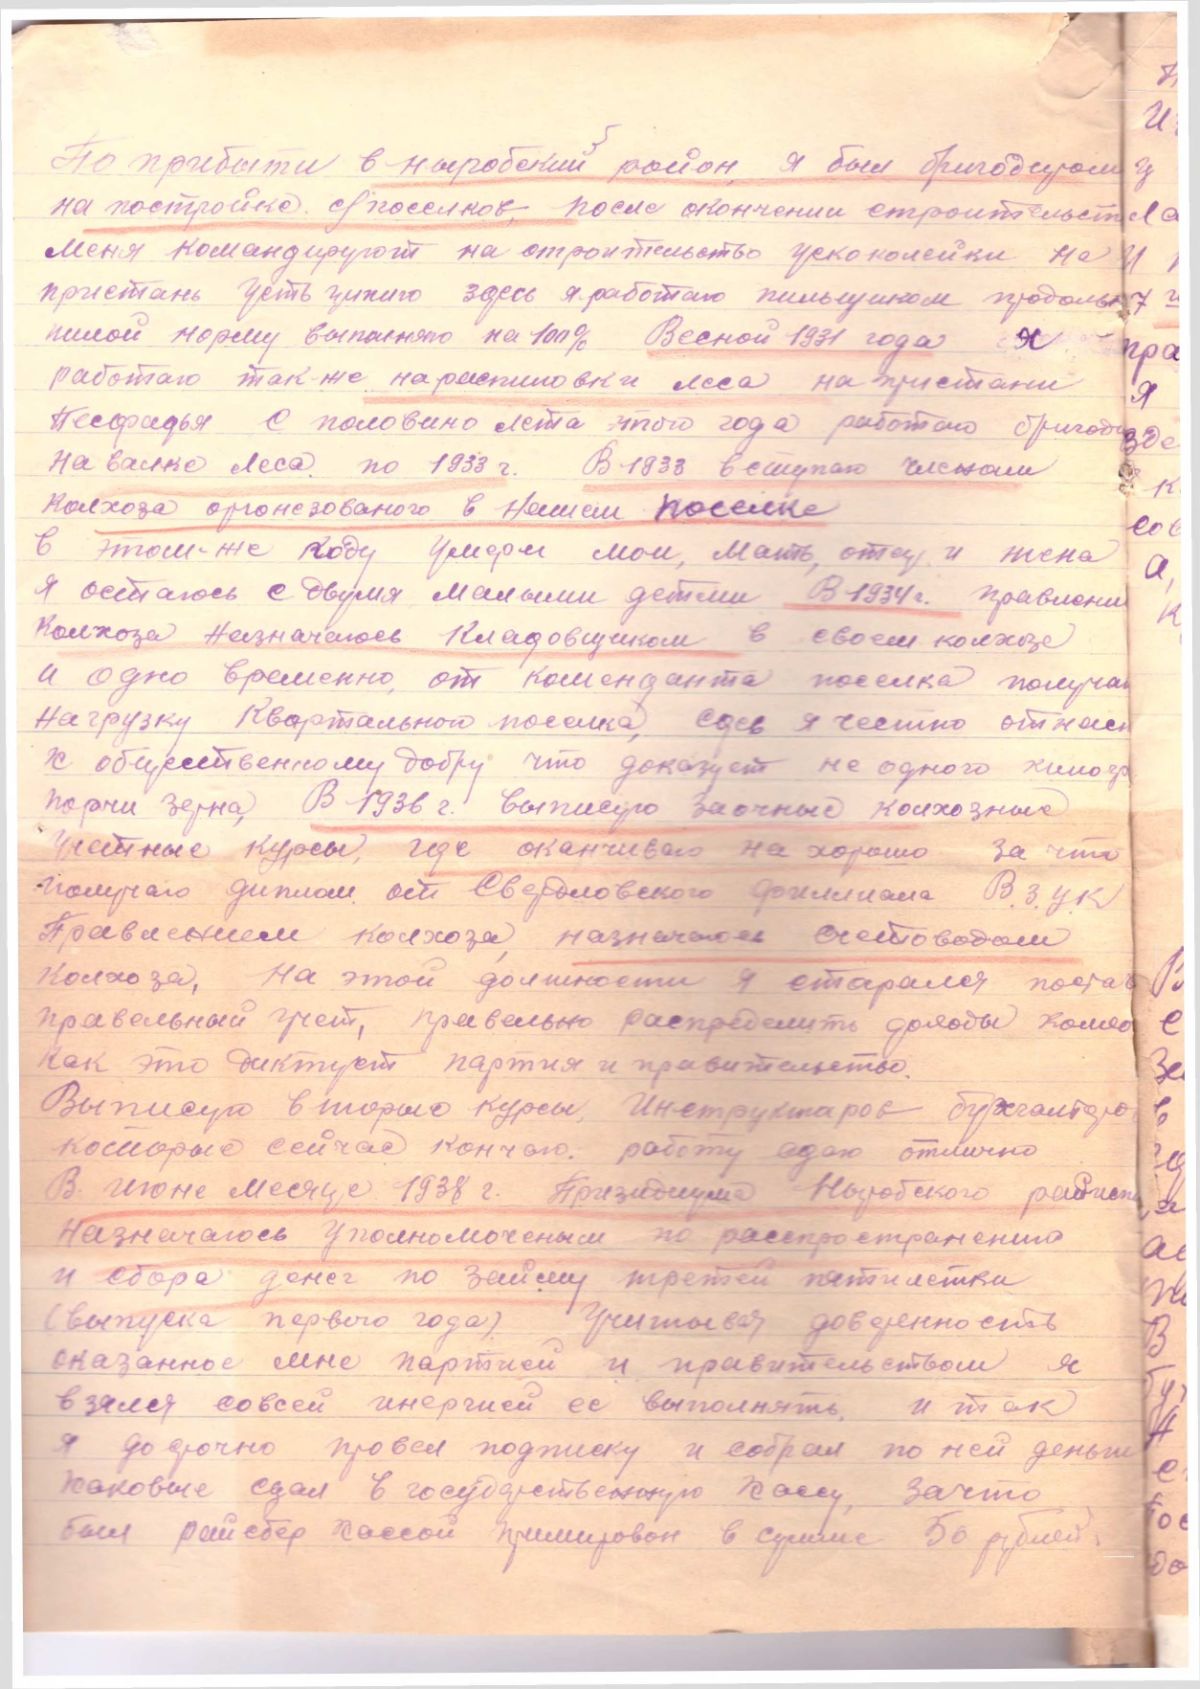 5
По прибыти в ныробский район, я был бригодиром
на постройке с/поселков, после окончении строительств
меня командируют на строительство ускоколейки на
пристань Усть здесь я работаю пильщиком продольн
пилой норму выполняю на 100% Весной 1931 года я
работаю так-же на распиловки леса на пристани
С половино лета этого года работаю бригоди
на валке леса по 1933 г. В 1933 вступаю членом
колхоза оргонезованого в нашем поселке
в этом-же году умерли мои, мать, отец и жена
я остаюсь с двумя малыми детями В 1934 г. правлени
колхоза назначаюсь кладовщиком в своем колхозе
и одно временно, от коменданта поселка получаю
нагрузку квартального поселка, сдесь я честно отнаси
к общественному добру что доказует не одного килогр
порчи зерна, В 1936 г. выписую заочные колхозные
учетные курсы, где оканчиваю на хорошо за что
получаю диплом от Свердловского филлиала В.З.У.К
Правлением колхоза, назначаюсь счетоводом
колхоза, на этой должности я старался постав
правельный учет, правельно распределить доходы колхо
как это диктует партия и правительство.
Выписую вторые курсы, Инструкторов бухгалтеро
которые сейчас кончаю. работу сдаю отлично
В июне месяце 1938 г. Призидиума Ныробского райиспо
назначаюсь уполномоченым по расспространению
и сбора денег по займу третей пятилетки
(выпуска первого года) Учитывая доверенность
оказанное мне партией и правительством я
взялся совсей инергией ее выполнять, и так
я досрочно провел подписку и собрал по ней деньги
каковые сдал в государственную кассу, зачто
был райсбер кассой примирован в сумме 50 рублей.